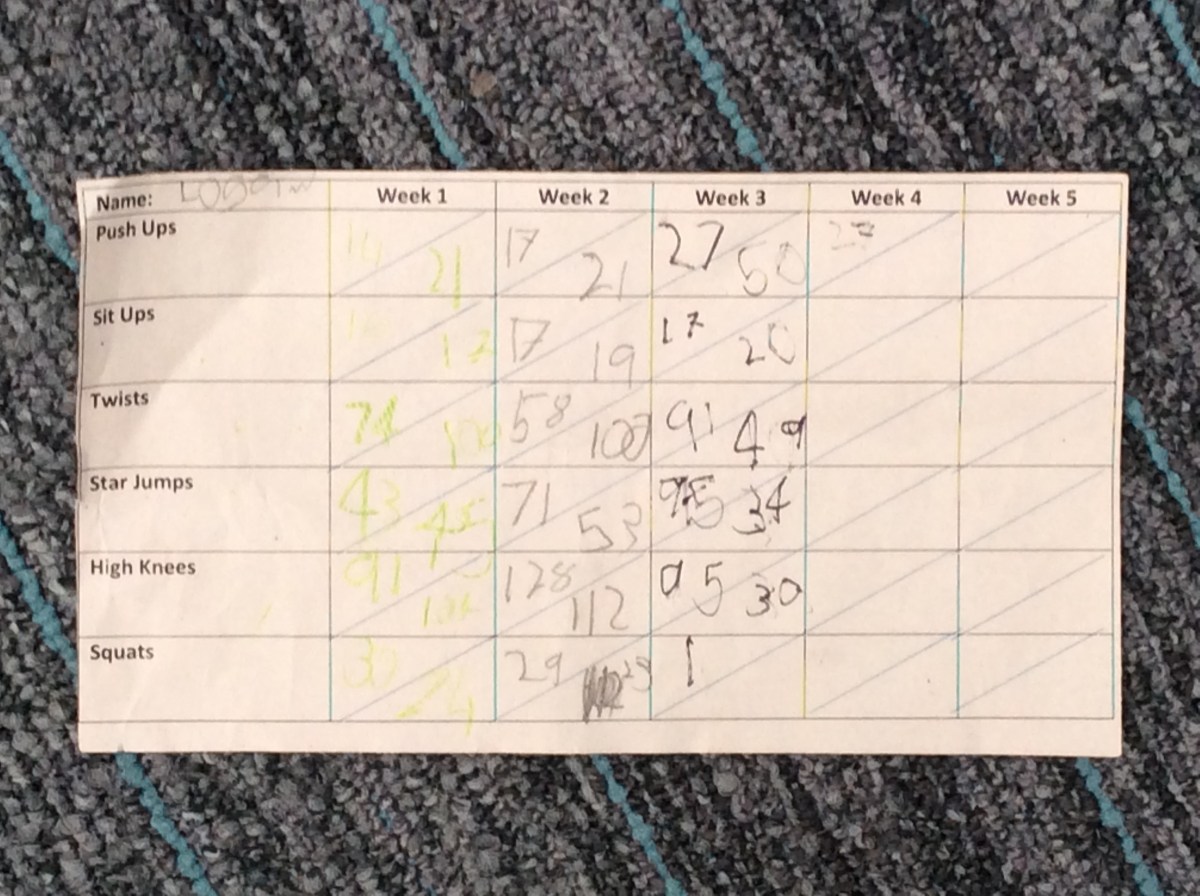 Name: Week 1 Week 2 Week 3 Week 4 Week 5
Push Ups 21 17 21 27 50
Sit Ups 17 17 19 17 20
Twists 74 100 58 100 91 49
Star Jumps 43 45 71 53 95 34
High Knees 91 128 112 95 30
Squats 30 24 29 29 1